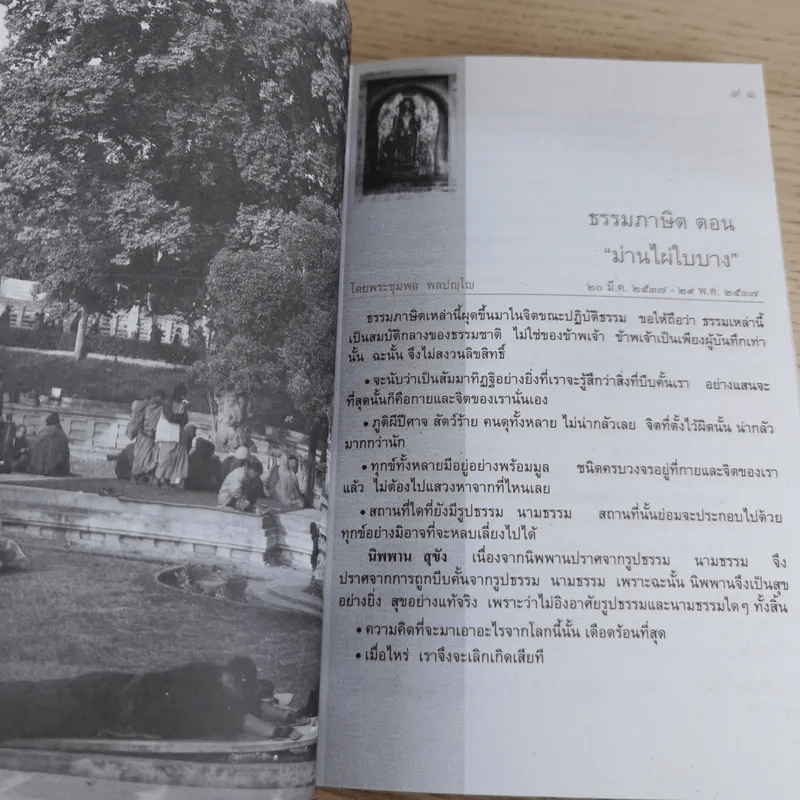 ๙๑
ธรรมภาษิต ตอน
“ม่านไผ่ใบบาง”
โดยพระชุมพล พลปญฺโญ
๒๐ มี.ค. ๒๕๓๗ - ๒๙ พ.ค. ๒๕๓๗
ธรรมภาษิตเหล่านี้ผุดขึ้นมาในจิตขณะปฏิบัติธรรม ขอให้ถือว่า ธรรมเหล่านี้
เป็นสมบัติกลางของธรรมชาติ ไม่ใช่ของข้าพเจ้า ข้าพเจ้าเป็นเพียงผู้บันทึกเท่า
นั้น ฉะนั้น จึงไม่สงวนลิขสิทธิ์
• จะนับว่าเป็นสัมมาทิฏฐิอย่างยิ่งที่เราจะรู้สึกว่าสิ่งที่บีบคั้นเรา อย่างแสนจะ
ที่สุดนั้นก็คือกายและจิตของเรานั่นเอง
• ภูติผีปีศาจ สัตว์ร้าย คนดุทั้งหลาย ไม่น่ากลัวเลย จิตที่ตั้งไว้ผิดนั้น น่ากลัว
มากกว่านัก
• ทุกข์ทั้งหลายมีอยู่อย่างพร้อมมูล ชนิดครบวงจรอยู่ที่กายและจิตของเรา
แล้ว ไม่ต้องไปแสวงหาจากที่ไหนเลย
• สถานที่ใดที่ยังมีรูปธรรม นามธรรม สถานที่นั้นย่อมจะประกอบไปด้วย
ทุกข์อย่างมิอาจที่จะหลบเลี่ยงไปได้
นิพพาน สุขัง เนื่องจากนิพพานปราศจากรูปธรรม นามธรรม จึง
ปราศจากการถูกบีบคั้นจากรูปธรรม นามธรรม เพราะฉะนั้น นิพพานจึงเป็นสุข
อย่างยิ่ง สุขอย่างแท้จริง เพราะว่าไม่อิงอาศัยรูปธรรมและนามธรรมใดๆ ทั้งสิ้น
• ความคิดที่จะมาเอาอะไรจากโลกนี้นั้น เดือดร้อนที่สุด
• เมื่อไหร่ เราจึงจะเลิกเกิดเสียที